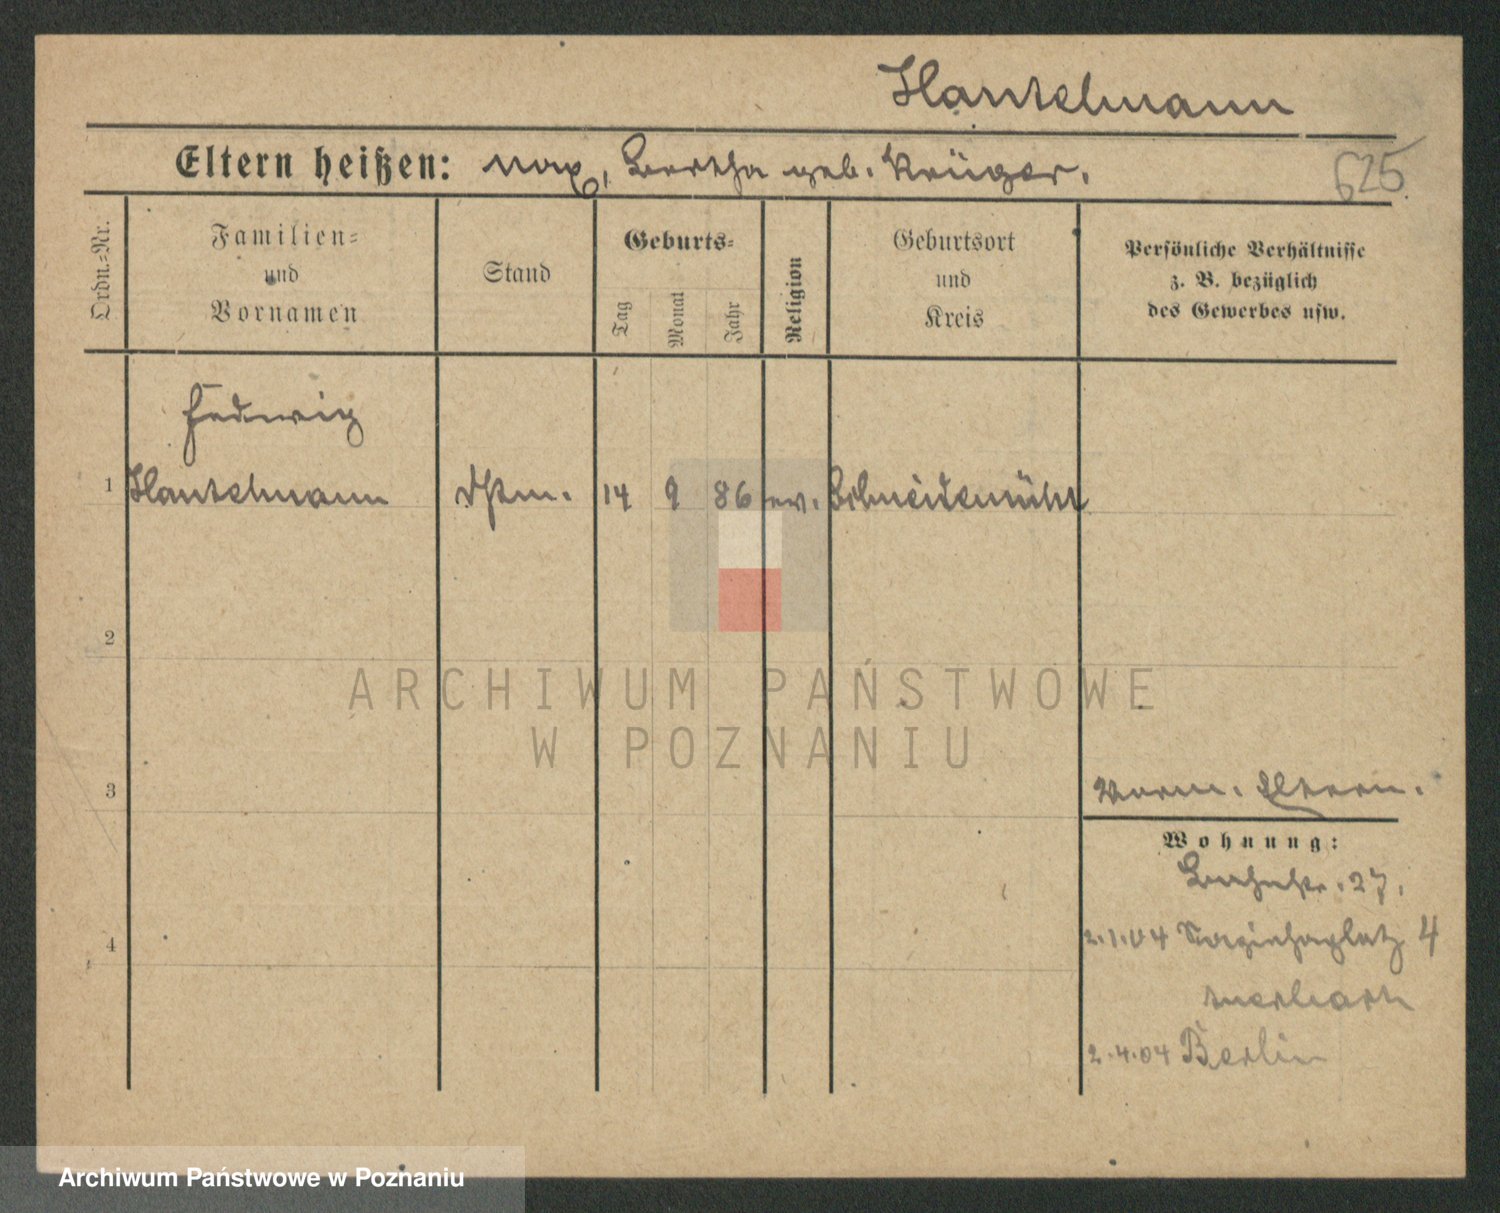 Hantelmann
Eltern heißen: Max, Bertha geb. Krüger.
625
Ordn.-Nr.
Familien-
und
Vornamen
Stand
Geburts-
Tag
Monat
Jahr
Religion
Geburtsort
und
Kreis
Persönliche Verhältnisse
z. B. bezüglich
des Gewerbes usw.
Hedwig
1 Hantelmann 14 9 86 ev. Schneidemühl
2
ARCHIWUM PAŃSTWOWE
W POZNANIU
3
Eltern.
Wohnung:
27.
4
2.1.04 4
2.4.04 Berlin
Archiwum Państwowe w Poznaniu